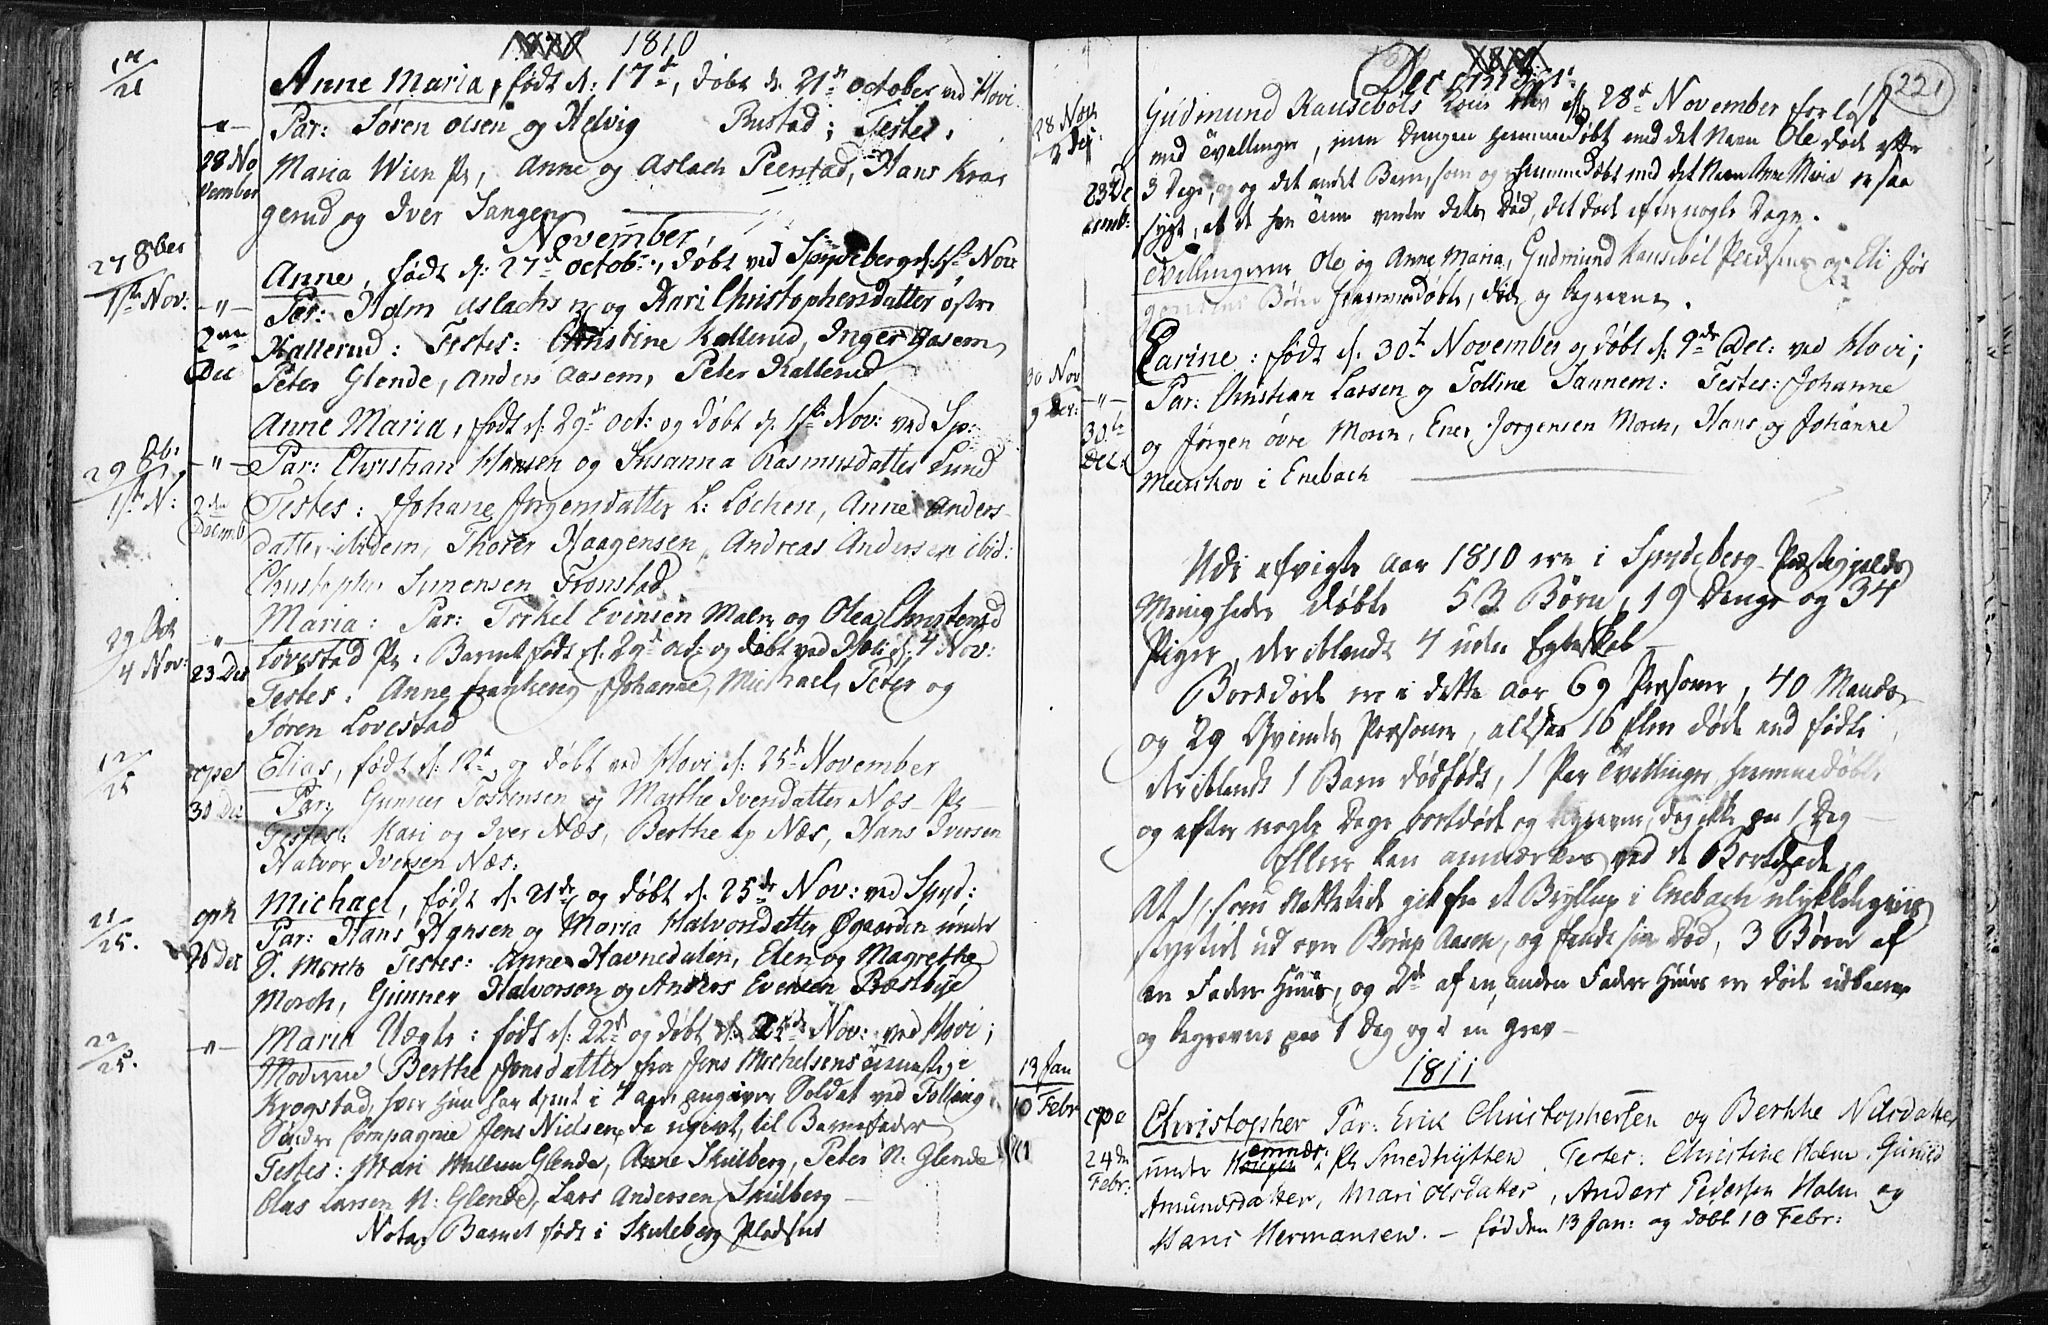 1810
17/21
Anne Maria, født d: 17de, døbt d. 21de october ved Hovi
Par: Søren Olsen og Helvig Rustad; Testes:
28 No
vember
Maria Wiin Pr, Anne og Aslach Peerstad, Hans Kra
gerud og Iver Langen
November
27 8ber
1ste Nov:
2den
Dec
Anne, født d: 27de octob:, døbt ved Spydeberg d. 1ste Nov
Par: Holm Aslachsen og Kari Christophersdatter østre
Kallerud: Testes: Christine Kallerud, Inger Aasem,
Peter Glende, Anders Aasem, Peter Kallerud
29 Ob:
1ste N:
2den
Decemb
Anne Maria, født d: 29de oct: og døbt d. 1ste Nov: ved Sp:
Par: Christian Hansen og Susanna Rasmusdatter Lund
Testes: Johane Jørgensdatter L: Løchen, Anne Anders-
datter ibidem, Thorer Haagensen, Andreas Andersen ibid:
Christopher Simensen Fronstad
29 Oct
4 Nov:
23 Dec
Maria: Par: Torkel Evinsen Maln og Olea Christensd
Løvestad Pr: Barnet født d: 29de oct: og døbt ved Hovi d: 4 Nov:
Testes: Anne Johanne, Michael, Peter og
Søren Lovestad
12/25
cope
30 Dec
Elias, født d: 12te og døbt ved Hovi d: 25de November
Par: Gunner Tostensen og Marthe Iversdatter Næs Pr
Testes: Kari og Iver Næs, Berthe Næs, Hans Iversen
Halvor Iversen Næs:
21/25.
26 Dec
Michael, født d. 21de og døbt d. 25de Nov: ved Spyd:
Par: Hans Hansen og Maria Halvorsdatter Øgaarden under
S. Morch Testes: Anne Havnedalen, Elen og Magrethe
Morch, Gunner Halvorsen og Anders Evensen Præstbye
22/25.
Maria Uægte: født d: 22de og døbt d. 25de Nov: ved Hovi;
Moderen Berthe Jensdatter fra Jens Michelsens
Krogstad, hvor hun har tjent i angiver Soldat ved Folloug
Søndre Compagnie Jens Nielsen da ugivt, til Barnefader
Testes: Mari Mellum Glende, Anne Skulberg, Peter N. Glende
Olas Larsen N: Glende, Lars Andersen Skulberg
Nota: Barnet født i Skuleberg Pladsen
221
December
28 Nov
2 Dec:
23 De
cemb:
Gudmund Kausebøls Kone blev d. 28de November forløst
med Tvillinger, een Drengen hiemmedøbt med det Navn Ole døde efter
3 Dage, og det andet Barn, som og hiemmedøbt med det Navn Anne Maria er saa
sygt, at det hver Time venter dets Død, det døde efter nogle Dage.
Tvillingerne Ole og Anne Maria, Gudmund Kausebøl Pladsens og Eli Jør
gensens Børn hiemmedøbt, døde og begravne.
30 Nov
9 Dec:
30te
Dec:
Karine: født d. 30te November og døbt d. 9de Dec: ved Hovi;
Par: Christian Larsen og Folline Sannem: Testes: Johanne
og Jørgen øvre Moren, Ener Jorgensen Moren, Hans og Johanne
Meenskov i Enebach
Udi afvigte Aar 1810 ere i Spydeberg Præstegjelds
Menigheder døbte 53 Børn, 19 Drenge og 34
Piger, deriblandt 4 uden Egteskab
Bortdøde ere i dette Aar 69 Personer, 40 Mands
og 29 Qvinde Personer, altsaa 16 flere døde end fødte
deriblandt 1 Barn dødfødt, 1 Par Tvillinger hiemmedøbte
og efter nogle Dage bortdøde og begravne, dog ikke paa 1 Dag
Ellers kan anmærkes ved de Bortdøde
At 1, som Natteltide gik fra et Bryllup i Enebach ulykkeligviis
styrtede ud over Aasen, og fandt sin Død, 3 Børn af
en Faders Huus, og 2de af en anden Faders Huus ere døde
og begravne paa 1 Dag og i en Grav
1811
13 Jan
10 Febr
1811
cpe
24de
Febr:
Christopher Par: Erik Christophersen og Berthe Nilsdatter
under Pl Smedhytten. Testes: Christine Holm. Gunild
Amundsdatter, Mari Olsdatter, Anders Pedersen Holm og
Hans Hermansen. – fød den 13 Jan: og døbt 10 Febr: